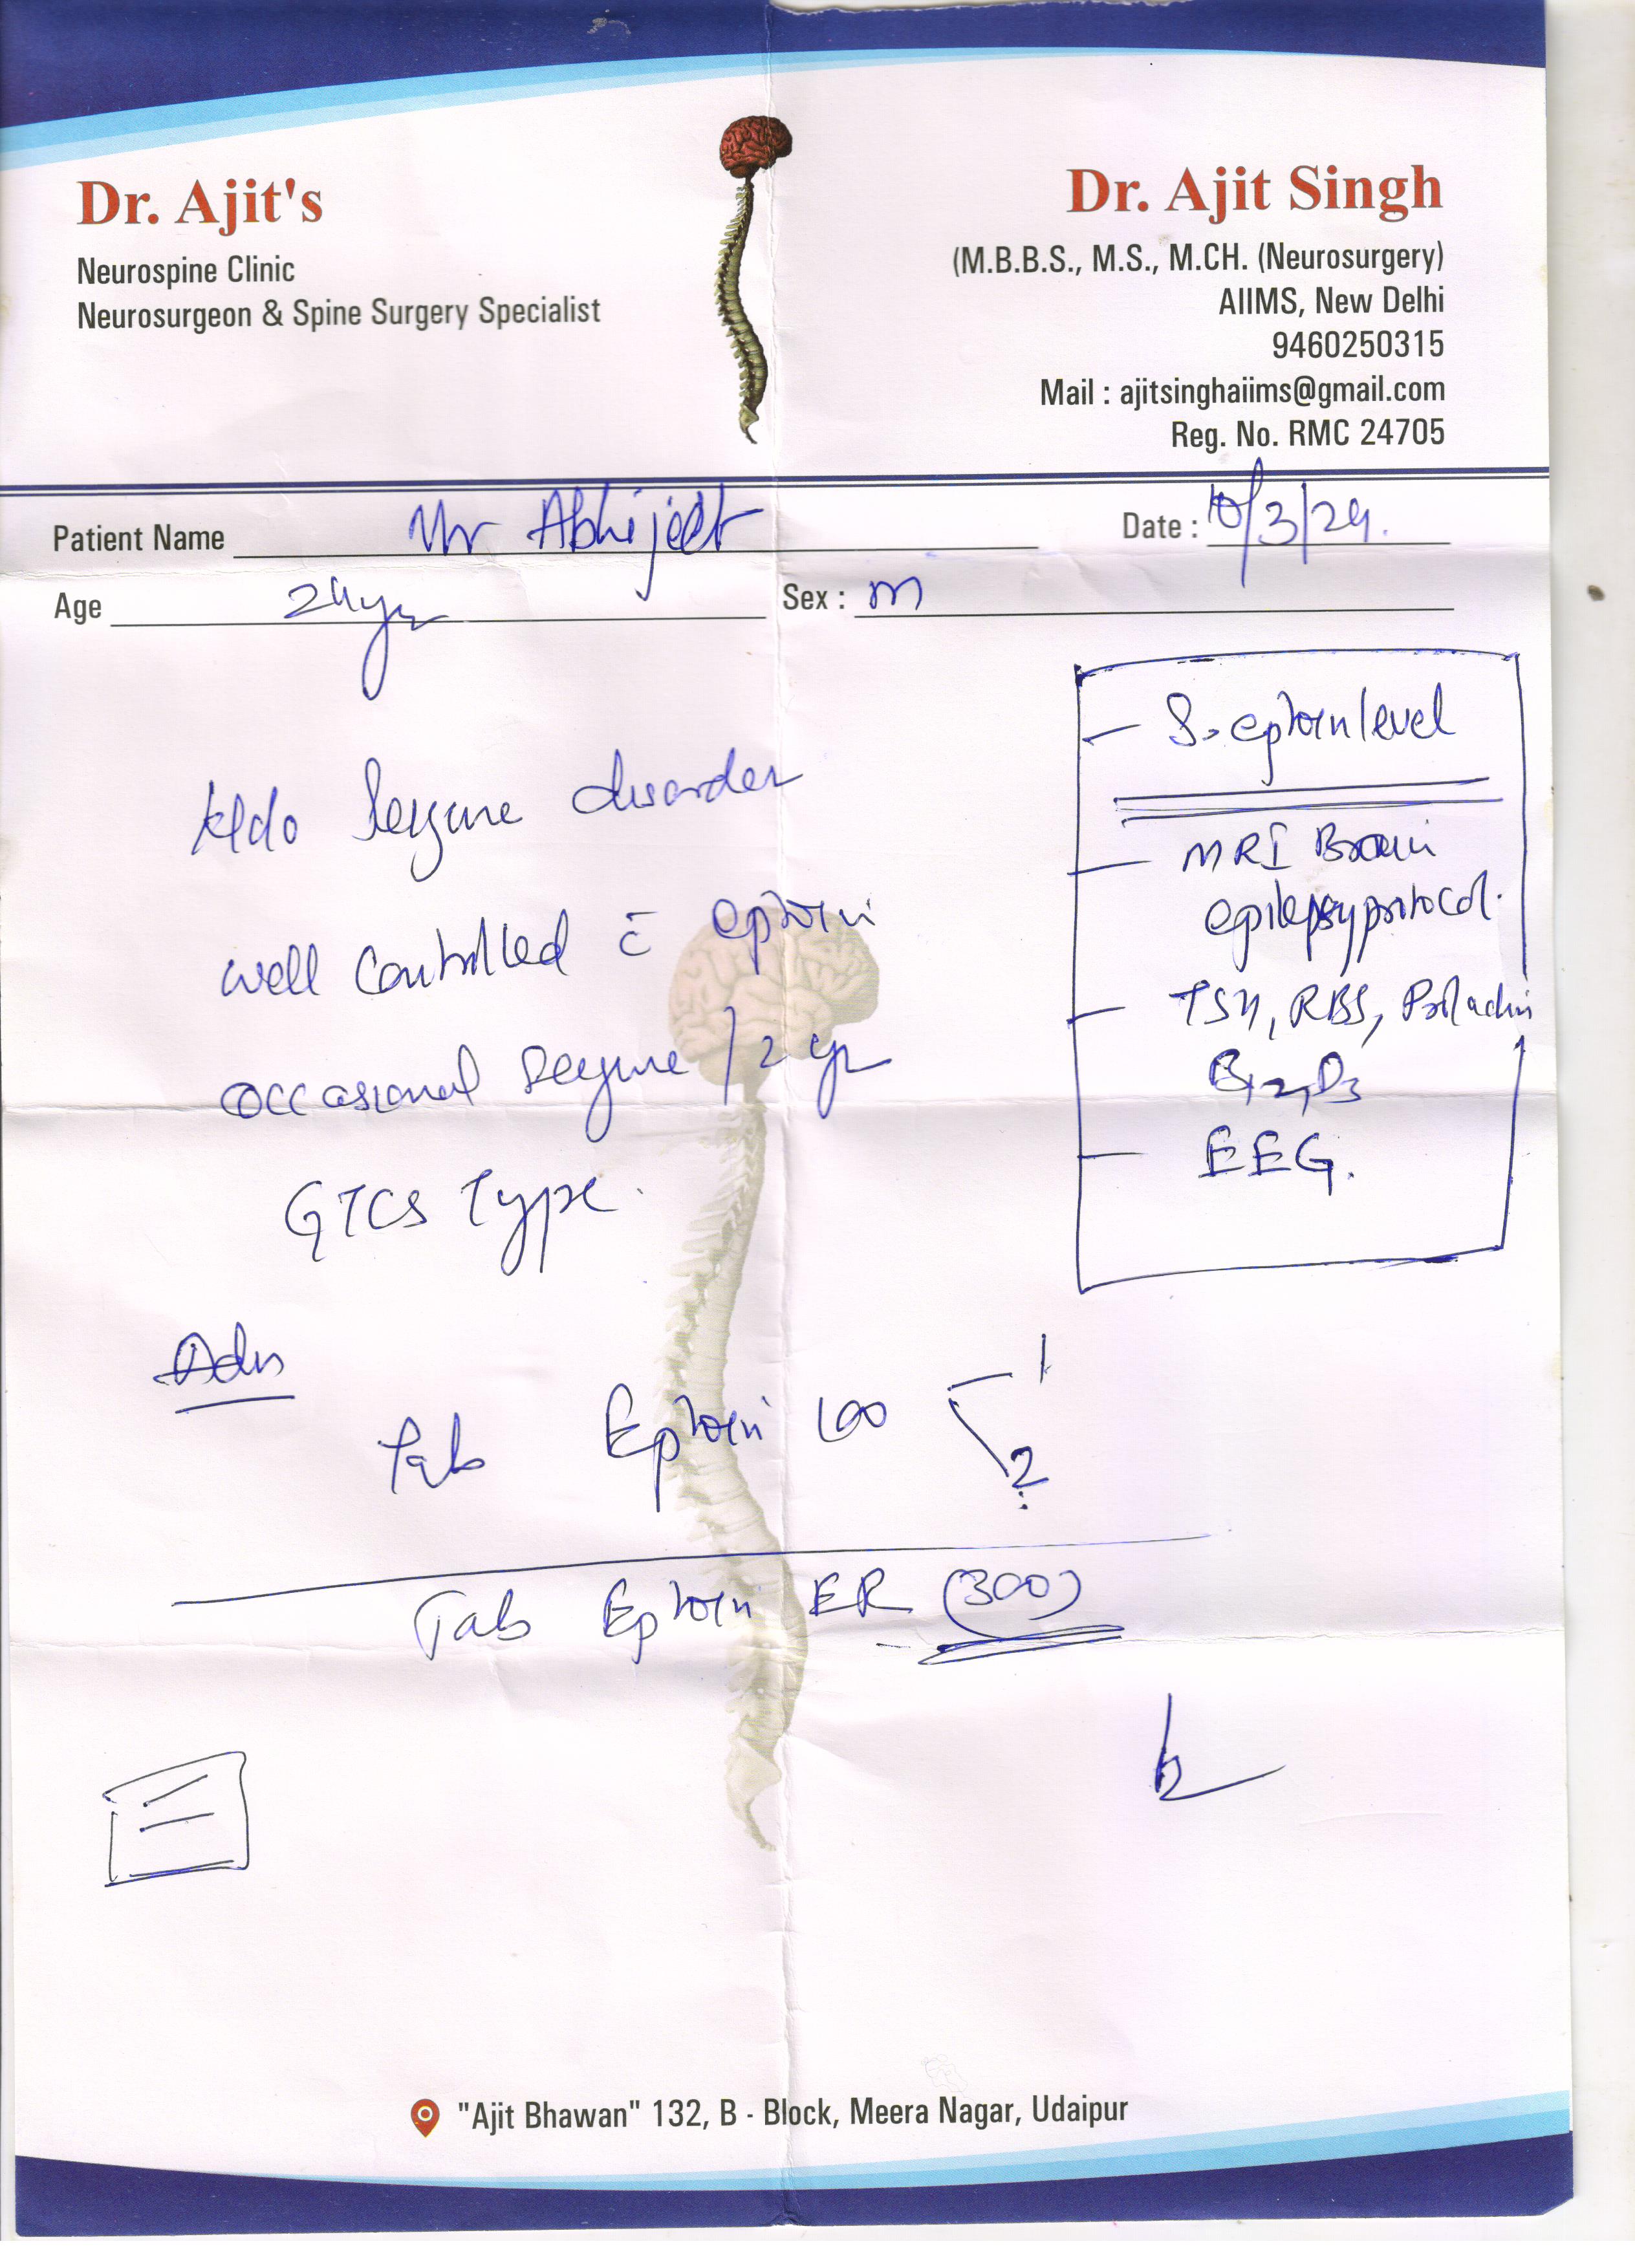 Dr. Ajit's
Neurospine Clinic
Neurosurgeon & Spine Surgery Specialist
Dr. Ajit Singh
(M.B.B.S., M.S., M.CH. (Neurosurgery)
AIIMS, New Delhi
9460250315
Mail : ajitsinghaiims@gmail.com
Reg. No. RMC 24705
Patient Name Mr Abhijeet
Date : 10/3/24.
Age 24yr
Sex : m
K/c/o Seizure disorder
well controlled c̄ eptoin
occasional seizure / 2 yr
GTCS Type.
- S. eptoin level
- MRI Brain
epilepsy protocol.
- TSH, RBS, Prolactin
B12, D3
- EEG.
Adv
Tab Eptoin 100 1
2
Tab Eptoin ER (300)
"Ajit Bhawan" 132, B - Block, Meera Nagar, Udaipur